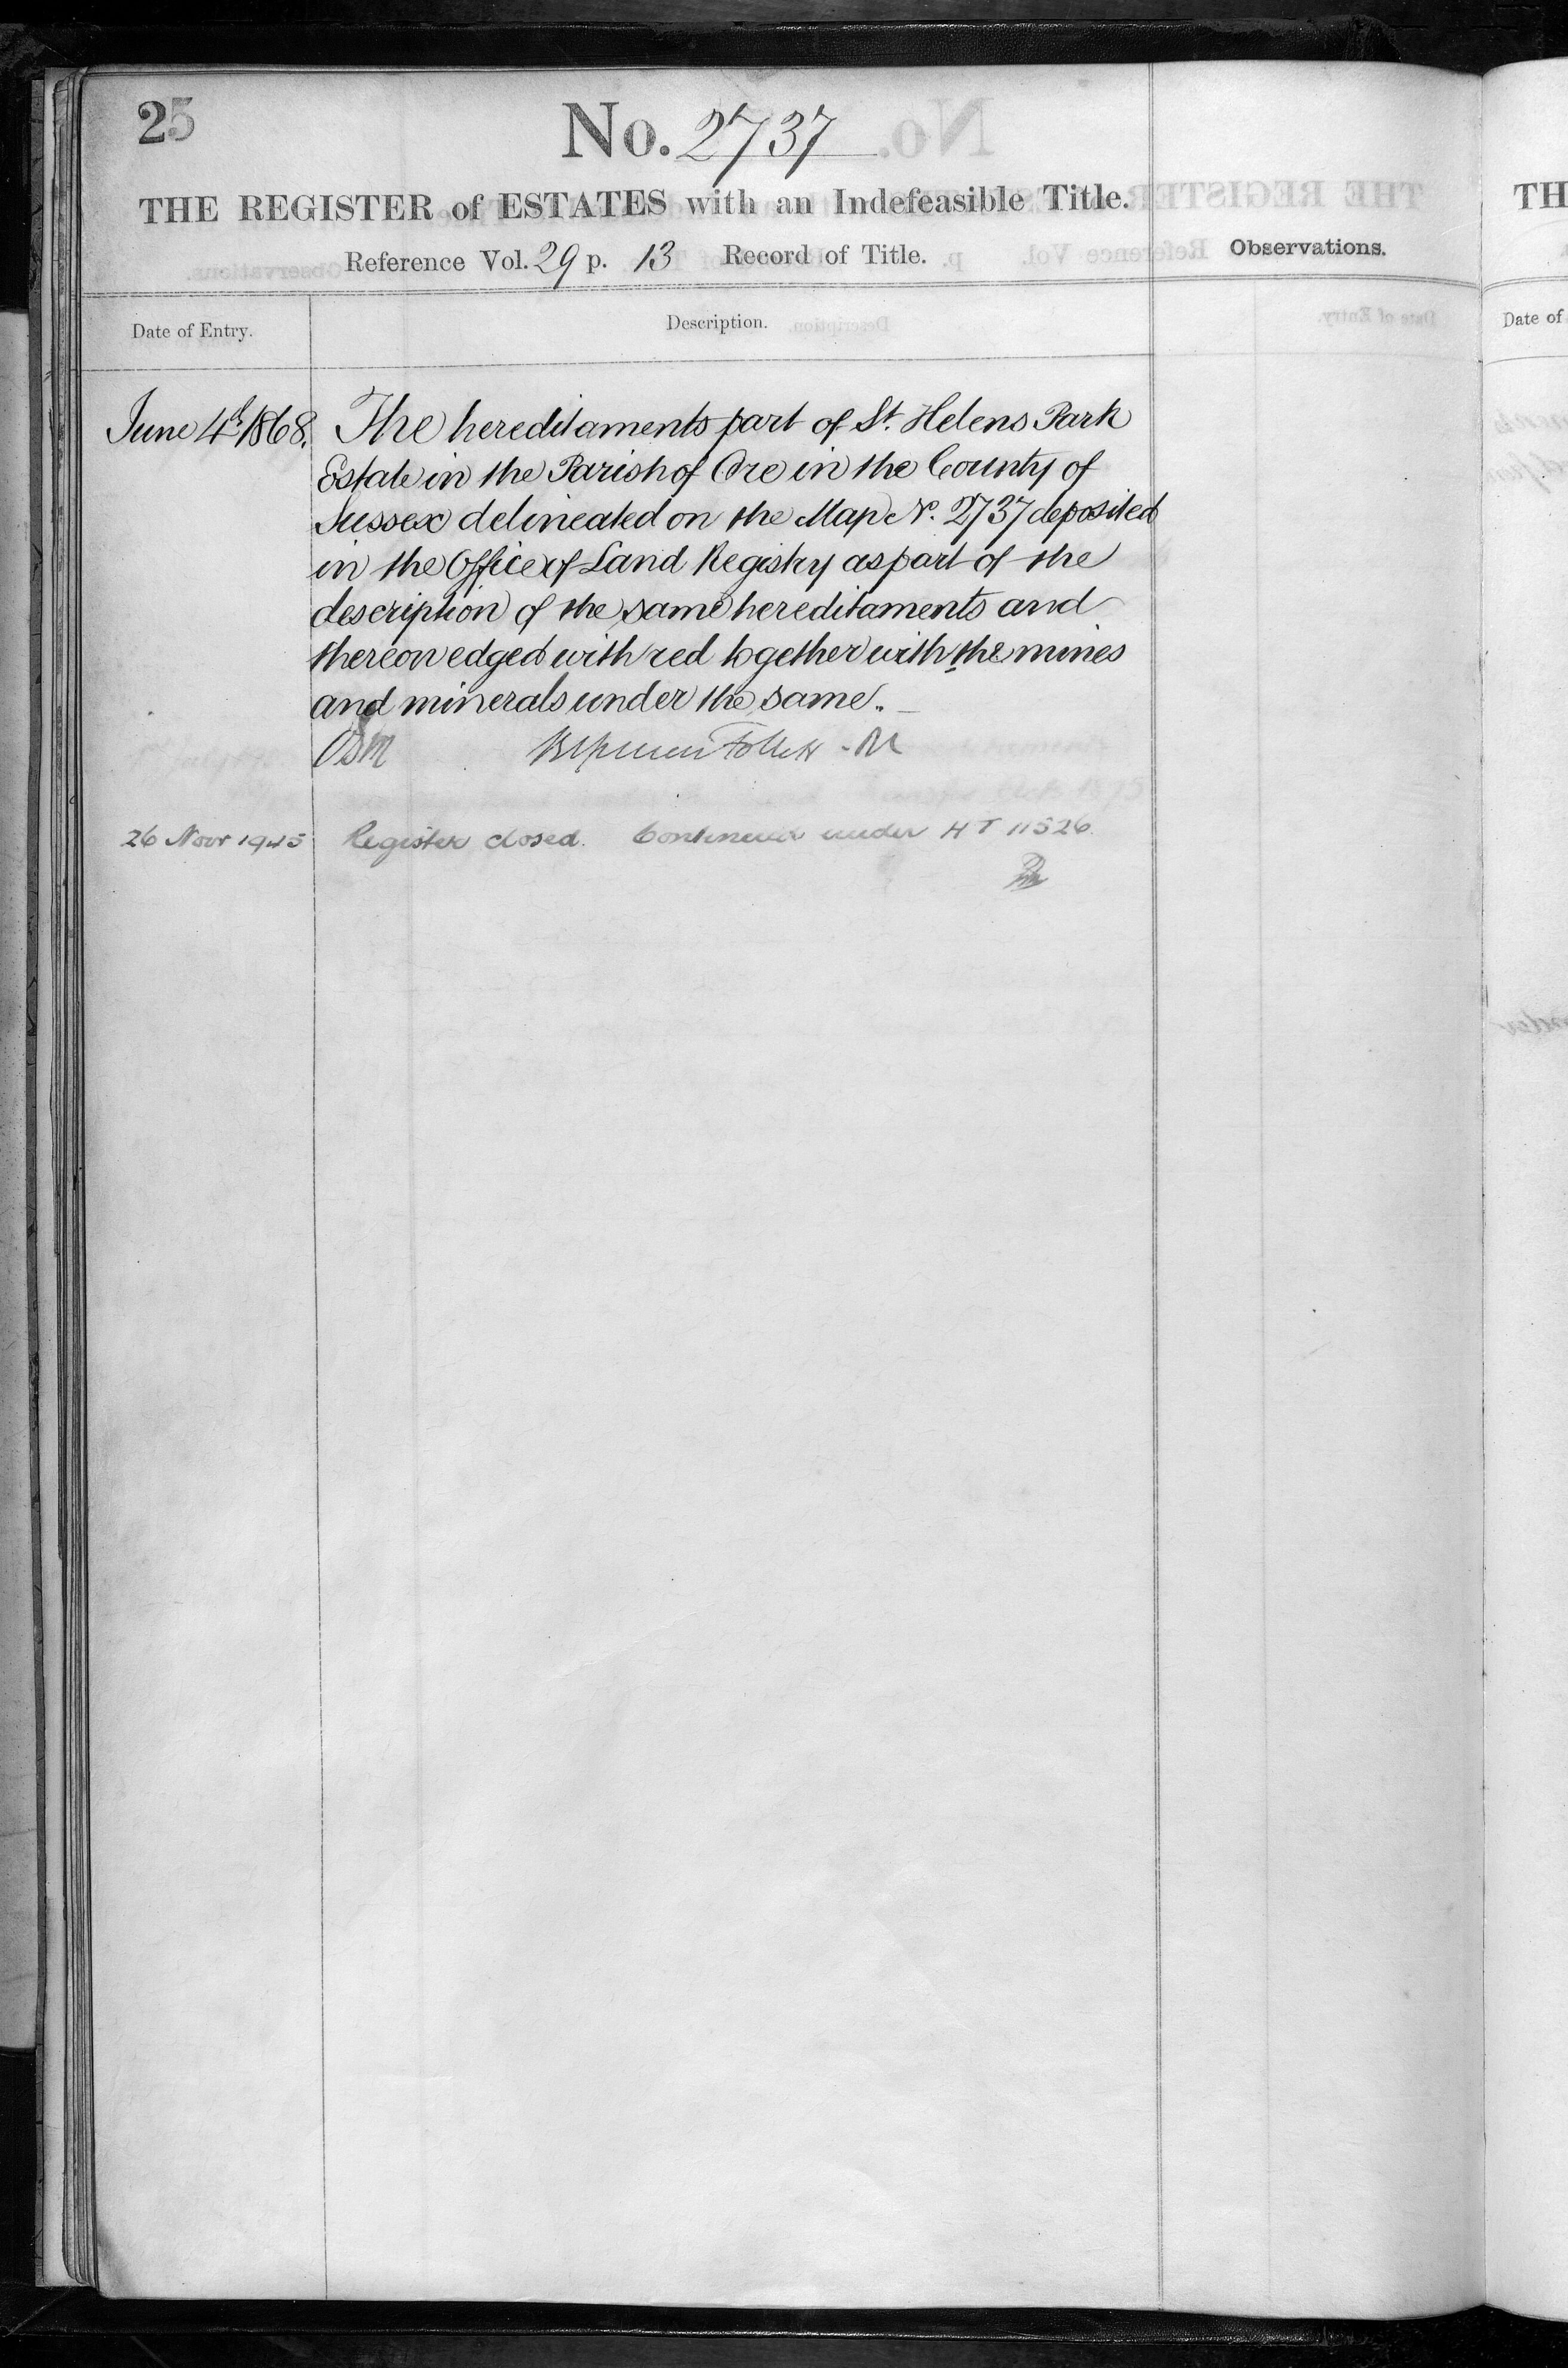 25
No. 2737
THE REGISTER of ESTATES with an Indefeasible Title.
Reference Vol. 29 p. 13 Record of Title.
Observations.
Date of Entry.
Description.
June 4th 1868. The hereditaments part of St. Helens Park
Estate in the Parish of Ore in the County of
Sussex delineated on the Map No. 2737 deposited
in the Office of Land Registry as part of the
description of the same hereditaments and
thereon edged with red together with the mines
and minerals under the same.
Follett
26 Novr 1945 Register closed. Continued under HT 11526.
TH
Date of